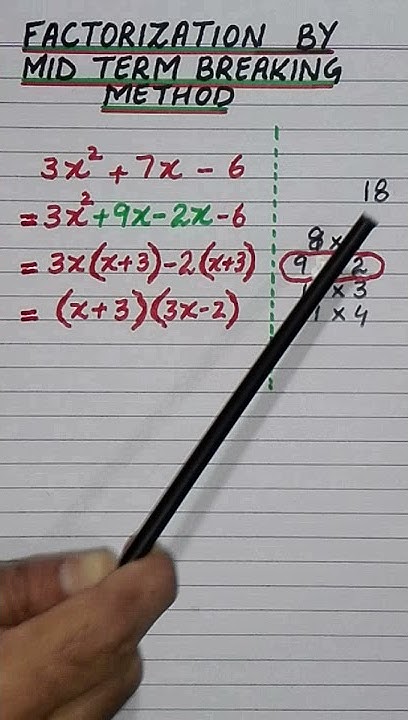 FACTORIZATION BY
MID TERM BREAKING
METHOD
3x² + 7x - 6
= 3x² + 9x - 2x - 6
= 3x(x+3) - 2(x+3)
= (x+3)(3x-2)
18
×
9 2
× 3
1 × 4